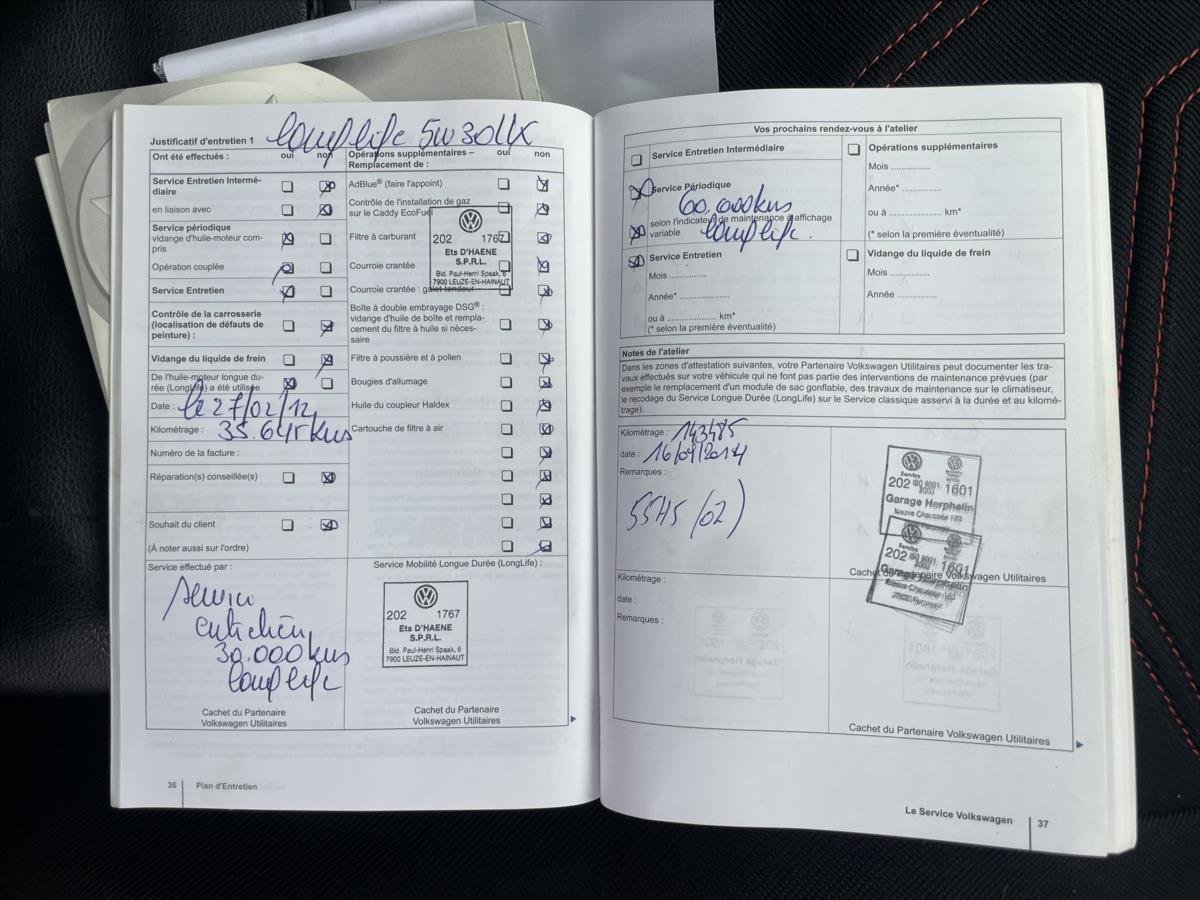 Justificatif d'entretien 1 longlife 5W30LL
Ont été effectués : oui non
Service Entretien Intermé-
diaire
en liaison avec
Service périodique
vidange d'huile-moteur com-
pris
Opération couplée
Service Entretien
Contrôle de la carrosserie
(localisation de défauts de
peinture) :
Vidange du liquide de frein
De l'huile-moteur longue du-
rée (LongLife) a été utilisée
Date : le 27/02/12
Kilométrage : 35.645 kms
Numéro de la facture :
Réparation(s) conseillée(s)
Souhait du client
(À noter aussi sur l'ordre)
Service effectué par :
Service
entretien
30.000 kms
longlife
Cachet du Partenaire
Volkswagen Utilitaires
Opérations supplémentaires – oui non
Remplacement de :
AdBlue® (faire l'appoint)
Contrôle de l'installation de gaz
sur le Caddy EcoFuel
Filtre à carburant
Courroie crantée
Courroie crantée : galet tendeur
202 1767
Ets D'HAENE
S.P.R.L.
Bld. Paul-Henri Spaak, 6
7900 LEUZE-EN-HAINAUT
Boîte à double embrayage DSG® :
vidange d'huile de boîte et rempla-
cement du filtre à huile si néces-
saire
Filtre à poussière et à pollen
Bougies d'allumage
Huile du coupleur Haldex
Cartouche de filtre à air
Service Mobilité Longue Durée (LongLife) :
202 1767
Ets D'HAENE
S.P.R.L.
Bld. Paul-Henri Spaak, 6
7900 LEUZE-EN-HAINAUT
Cachet du Partenaire
Volkswagen Utilitaires
36 Plan d'Entretien
Vos prochains rendez-vous à l'atelier
Service Entretien Intermédiaire
Service Périodique
60.000 kms
selon l'indicateur de maintenance à affichage
variable. longlife.
Service Entretien
Mois ..............
Année* ..............
ou à .................... km*
(* selon la première éventualité)
Opérations supplémentaires
Mois ..............
Année* ..............
ou à .................... km*
(* selon la première éventualité)
Vidange du liquide de frein
Mois ..............
Année ..............
Notes de l'atelier
Dans les zones d'attestation suivantes, votre Partenaire Volkswagen Utilitaires peut documenter les tra-
vaux effectués sur votre véhicule qui ne font pas partie des interventions de maintenance prévues (par
exemple le remplacement d'un module de sac gonflable, des travaux de maintenance sur le climatiseur,
le recodage du Service Longue Durée (LongLife) sur le Service classique asservi à la durée et au kilomé-
trage).
Kilométrage : 143485
date : 16/09/2014
Remarques :
55H5 (02)
Service
202 ISO 9001: 1601
2000
Garage Herphelin
Neuve Chaussée 189
Service
202 ISO 9001: 1601
Garage Herphelin
Cachet du Partenaire Volkswagen Utilitaires
Kilométrage :
date :
Remarques :
Cachet du Partenaire Volkswagen Utilitaires
Le Service Volkswagen 37